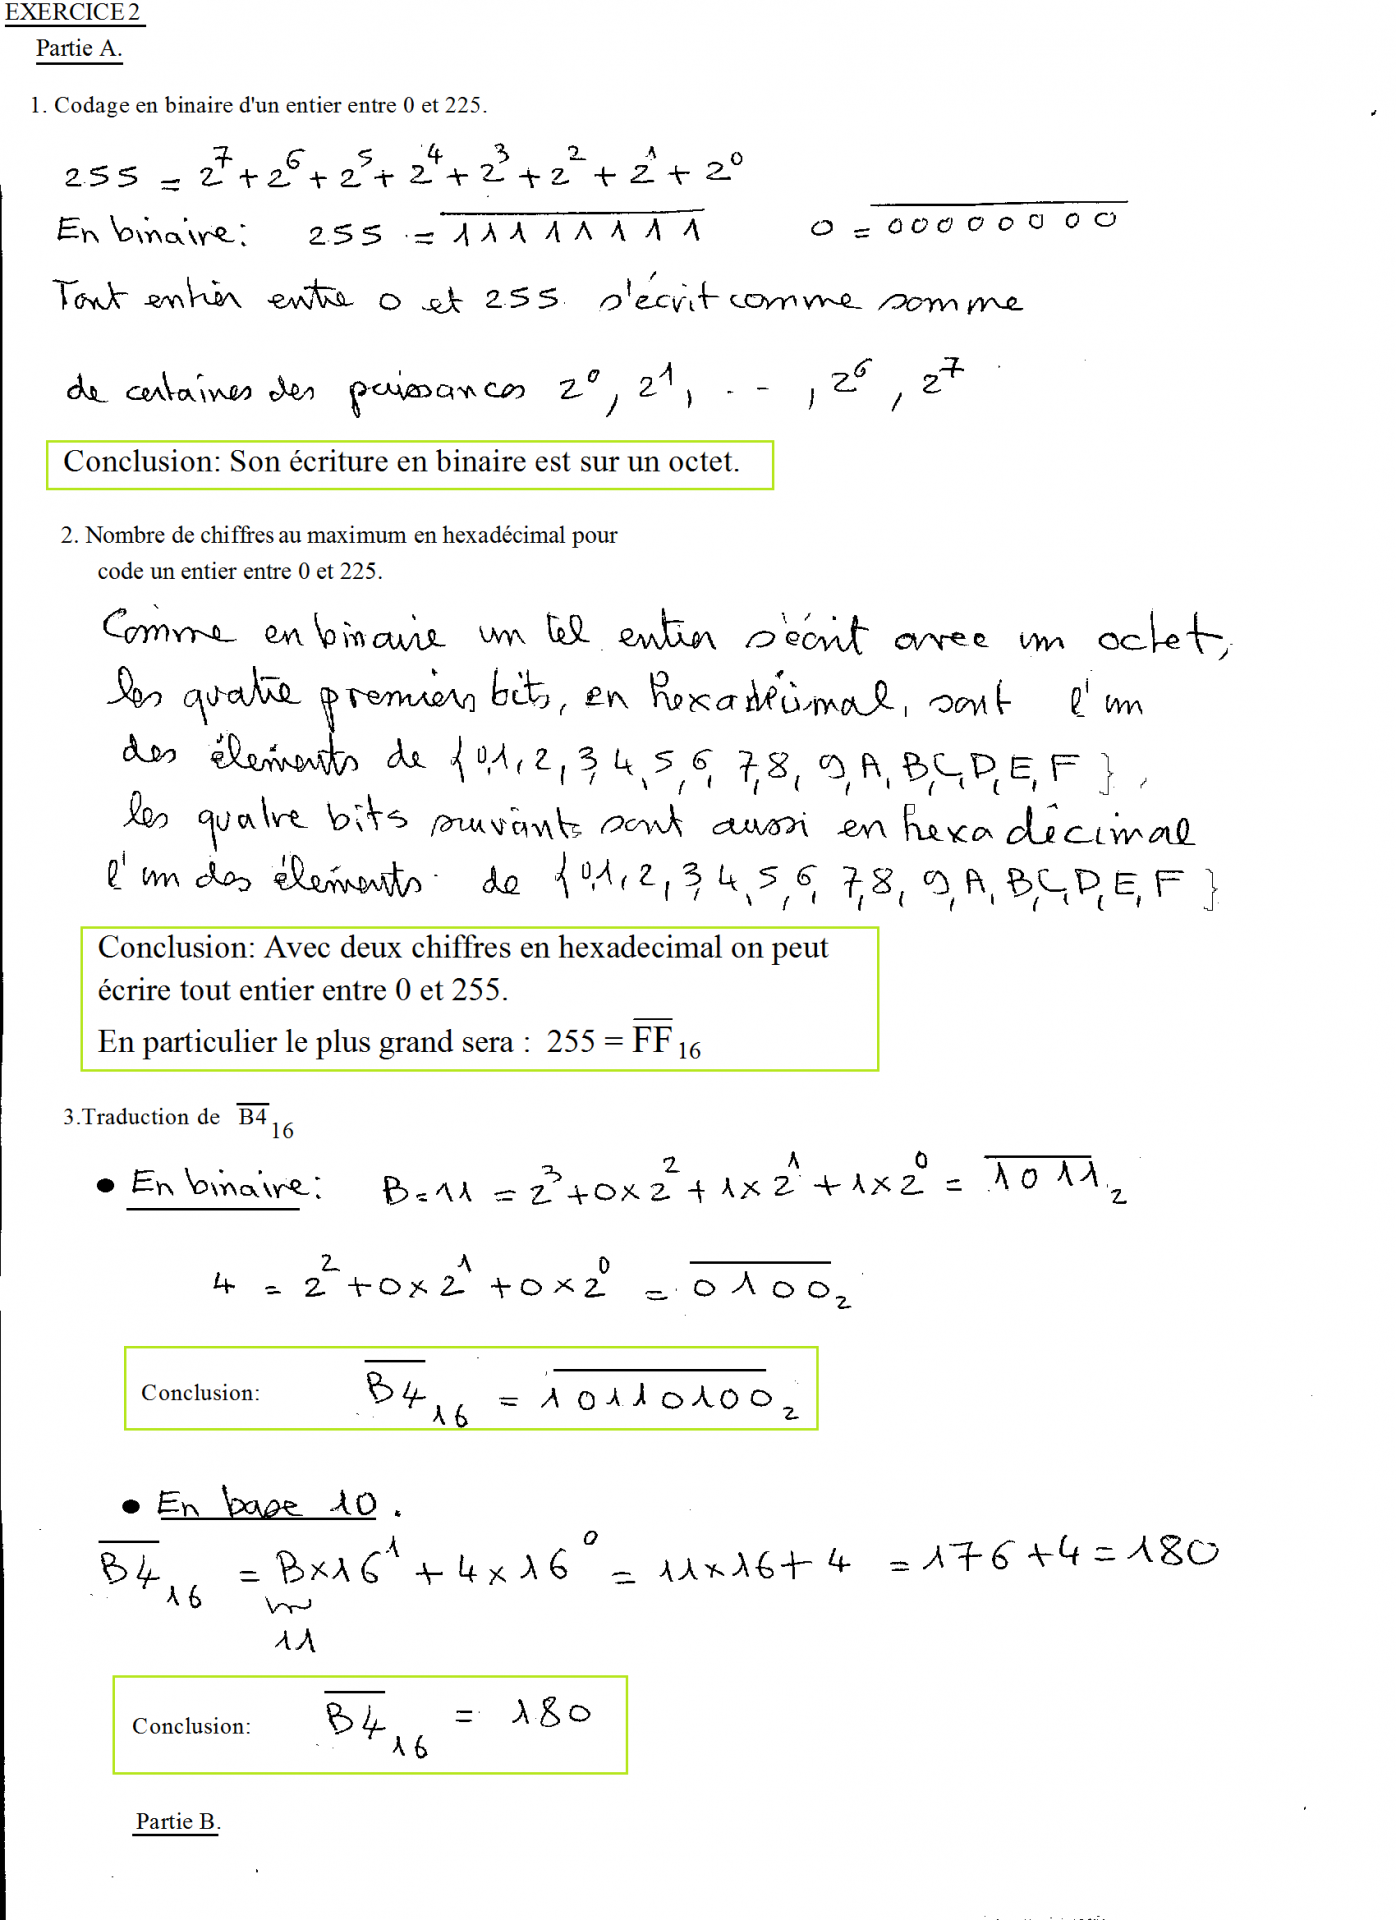 EXERCICE 2
Partie A.
1. Codage en binaire d'un entier entre 0 et 225.
255 = 2⁷ + 2⁶ + 2⁵ + 2⁴ + 2³ + 2² + 2¹ + 2⁰
En binaire: 255 = 11111111 0 = 00000000
Tout entier entre 0 et 255 s'écrit comme somme
de certaines des puissances 2⁰, 2¹, . . - , 2⁶, 2⁷
Conclusion: Son écriture en binaire est sur un octet.
2. Nombre de chiffres au maximum en hexadécimal pour
code un entier entre 0 et 225.
Comme en binaire un tel entier s'écrit avec un octet,
les quatre premiers bits, en hexadécimal, sont l'un
des éléments de {0,1,2,3,4,5,6,7,8,9,A,B,C,D,E,F},
les quatre bits suivants sont aussi en hexadécimal
l'un des éléments de {0,1,2,3,4,5,6,7,8,9,A,B,C,D,E,F}
Conclusion: Avec deux chiffres en hexadecimal on peut
écrire tout entier entre 0 et 255.
En particulier le plus grand sera : 255 = F̅F̅ ₁₆
3.Traduction de B̅4̅ ₁₆
• En binaire: B = 11 = 2³ + 0 × 2² + 1 × 2¹ + 1 × 2⁰ = 1̅0̅1̅1̅ ₂
4 = 2² + 0 × 2¹ + 0 × 2⁰ = 0̅1̅0̅0̅ ₂
Conclusion: B̅4̅ ₁₆ = 1̅0̅1̅1̅0̅1̅0̅0̅ ₂
• En base 10.
B̅4̅ ₁₆ = B × 16¹ + 4 × 16⁰ = 11 × 16 + 4 = 176 + 4 = 180
11
Conclusion: B̅4̅ ₁₆ = 180
Partie B.